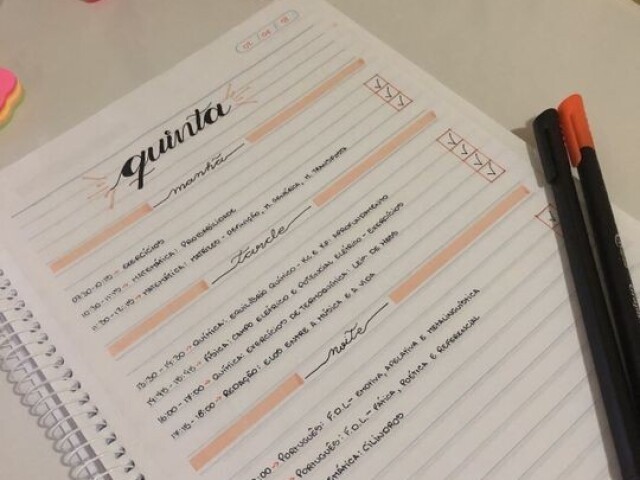 05 04 18
quinta
manhã
07:30-10:10 → EXERCÍCIOS
10:30-11:10 → MATEMÁTICA: PROBABILIDADE
11:30-12:10 → MATEMÁTICA: MATRIZES - DEFINIÇÃO, M. GENÉRICA, M. TRANSPOSTA
tarde
13:30-14:30 → QUÍMICA: EQUILÍBRIO QUÍMICO - KC E KP: APROFUNDAMENTO
14:45-15:45 → FÍSICA: CAMPO ELÉTRICO E POTENCIAL ELÉTRICO - EXERCÍCIOS
16:00-17:00 → QUÍMICA: EXERCÍCIOS DE TERMOQUÍMICA: LEI DE HESS
17:15-18:00 → REDAÇÃO: ELOS ENTRE A MÚSICA E A VIDA
noite
:00 → PORTUGUÊS: F.D.L - EMOTIVA, APELATIVA E METALINGUÍSTICA
PORTUGUÊS: F.D.L - FÁTICA, POÉTICA E REFERENCIAL
EMÁTICA: CILINDROS